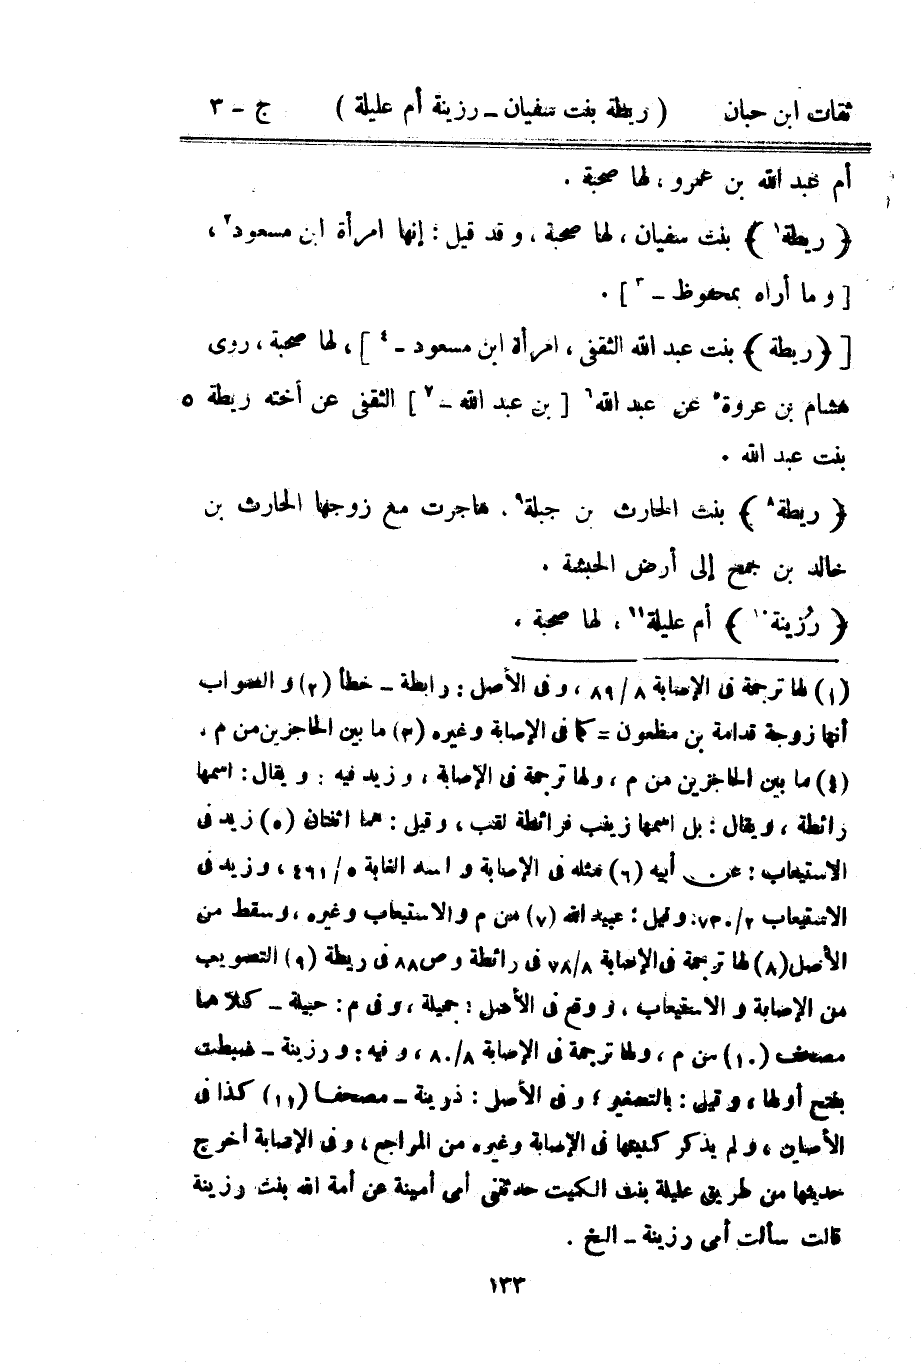 ثقات ابن حبان ( ريطة بنت سفيان ــ رزينة أم عليلة ) ج ــ ٣
أم عبد الله بن عمرو ، لها صحبة .
﴿ ريطة١ ﴾ بنت سفيان ، لها صحبة ، و قد قيل : إنها امرأة ابن مسعود٢ ،
[ و ما أراه بمحفوظ ــ ٣ ] .
[ ﴿ ريطة ﴾ بنت عبد الله الثقفى ، امرأة ابن مسعود ــ ٤ ] ، لها صحبة ، روى
هشام بن عروة٥ عن عبد الله٦ [ بن عبد الله ــ ٧ ] الثقفى عن أخته ريطة ٥
بنت عبد الله .
﴿ ريطة٨ ﴾ بنت الحارث بن جبلة٩ . هاجرت مع زوجها الحارث بن
خالد بن جمح إلى أرض الحبشة .
﴿ رُزينة١٠ ﴾ أم عليلة١١ ، لها صحبة .
(١) لها ترجمة فى الإصابة ٨ / ٨٩ ، و فى الأصل : رابطة ــ خطأ (٢) و الصواب
أنها زوجة قدامة بن مظعون = كما فى الإصابة و غيره (٣) ما بين الحاجزين من م .
(٤) ما بين الحاجزين من م ، و لها ترجمة فى الإصابة ، و زيد فيه : و يقال : اسمها
رائطة ، و يقال : بل اسمها زينب فرائطة لقب ، و قيل : هما اثنتان (٥) زيد فى
الاستيعاب : عن أبيه (٦) مثله فى الإصابة و اسد الغابة ٥ / ٤٦١ ، و زيد فى
الاستيعاب ٢ / ٧٣٠ : و قيل : عبيد الله (٧) من م و الاستيعاب و غيره ، و سقط من
الأصل (٨) لها ترجمة فى الإصابة ٨ / ٧٨ فى رائطة و ص ٨٨ فى ريطة (٩) التصويب
من الإصابة و الاستيعاب ، و وقع فى الأصل : جميلة ، و فى م : حبيلة ــ كلاهما
مصحف (١٠) من م ، و لها ترجمة فى الإصابة ٨ / ٨٠ ، و فيه : و رزينة ــ ضبطت
بفتح أولها ، و قيل : بالتصغير ؛ و فى الأصل : ذرينة ــ مصحفا (١١) كذا فى
الأصلين ، و لم يذكر كنيتها فى الإصابة و غيره من المراجع ، و فى الإصابة أخرج
حديثها من طريق عليلة بنت الكميت حدثتنى أمى أمينة عن أمة الله بنت رزينة
قالت سألت أمى رزينة ــ الخ .
١٣٣